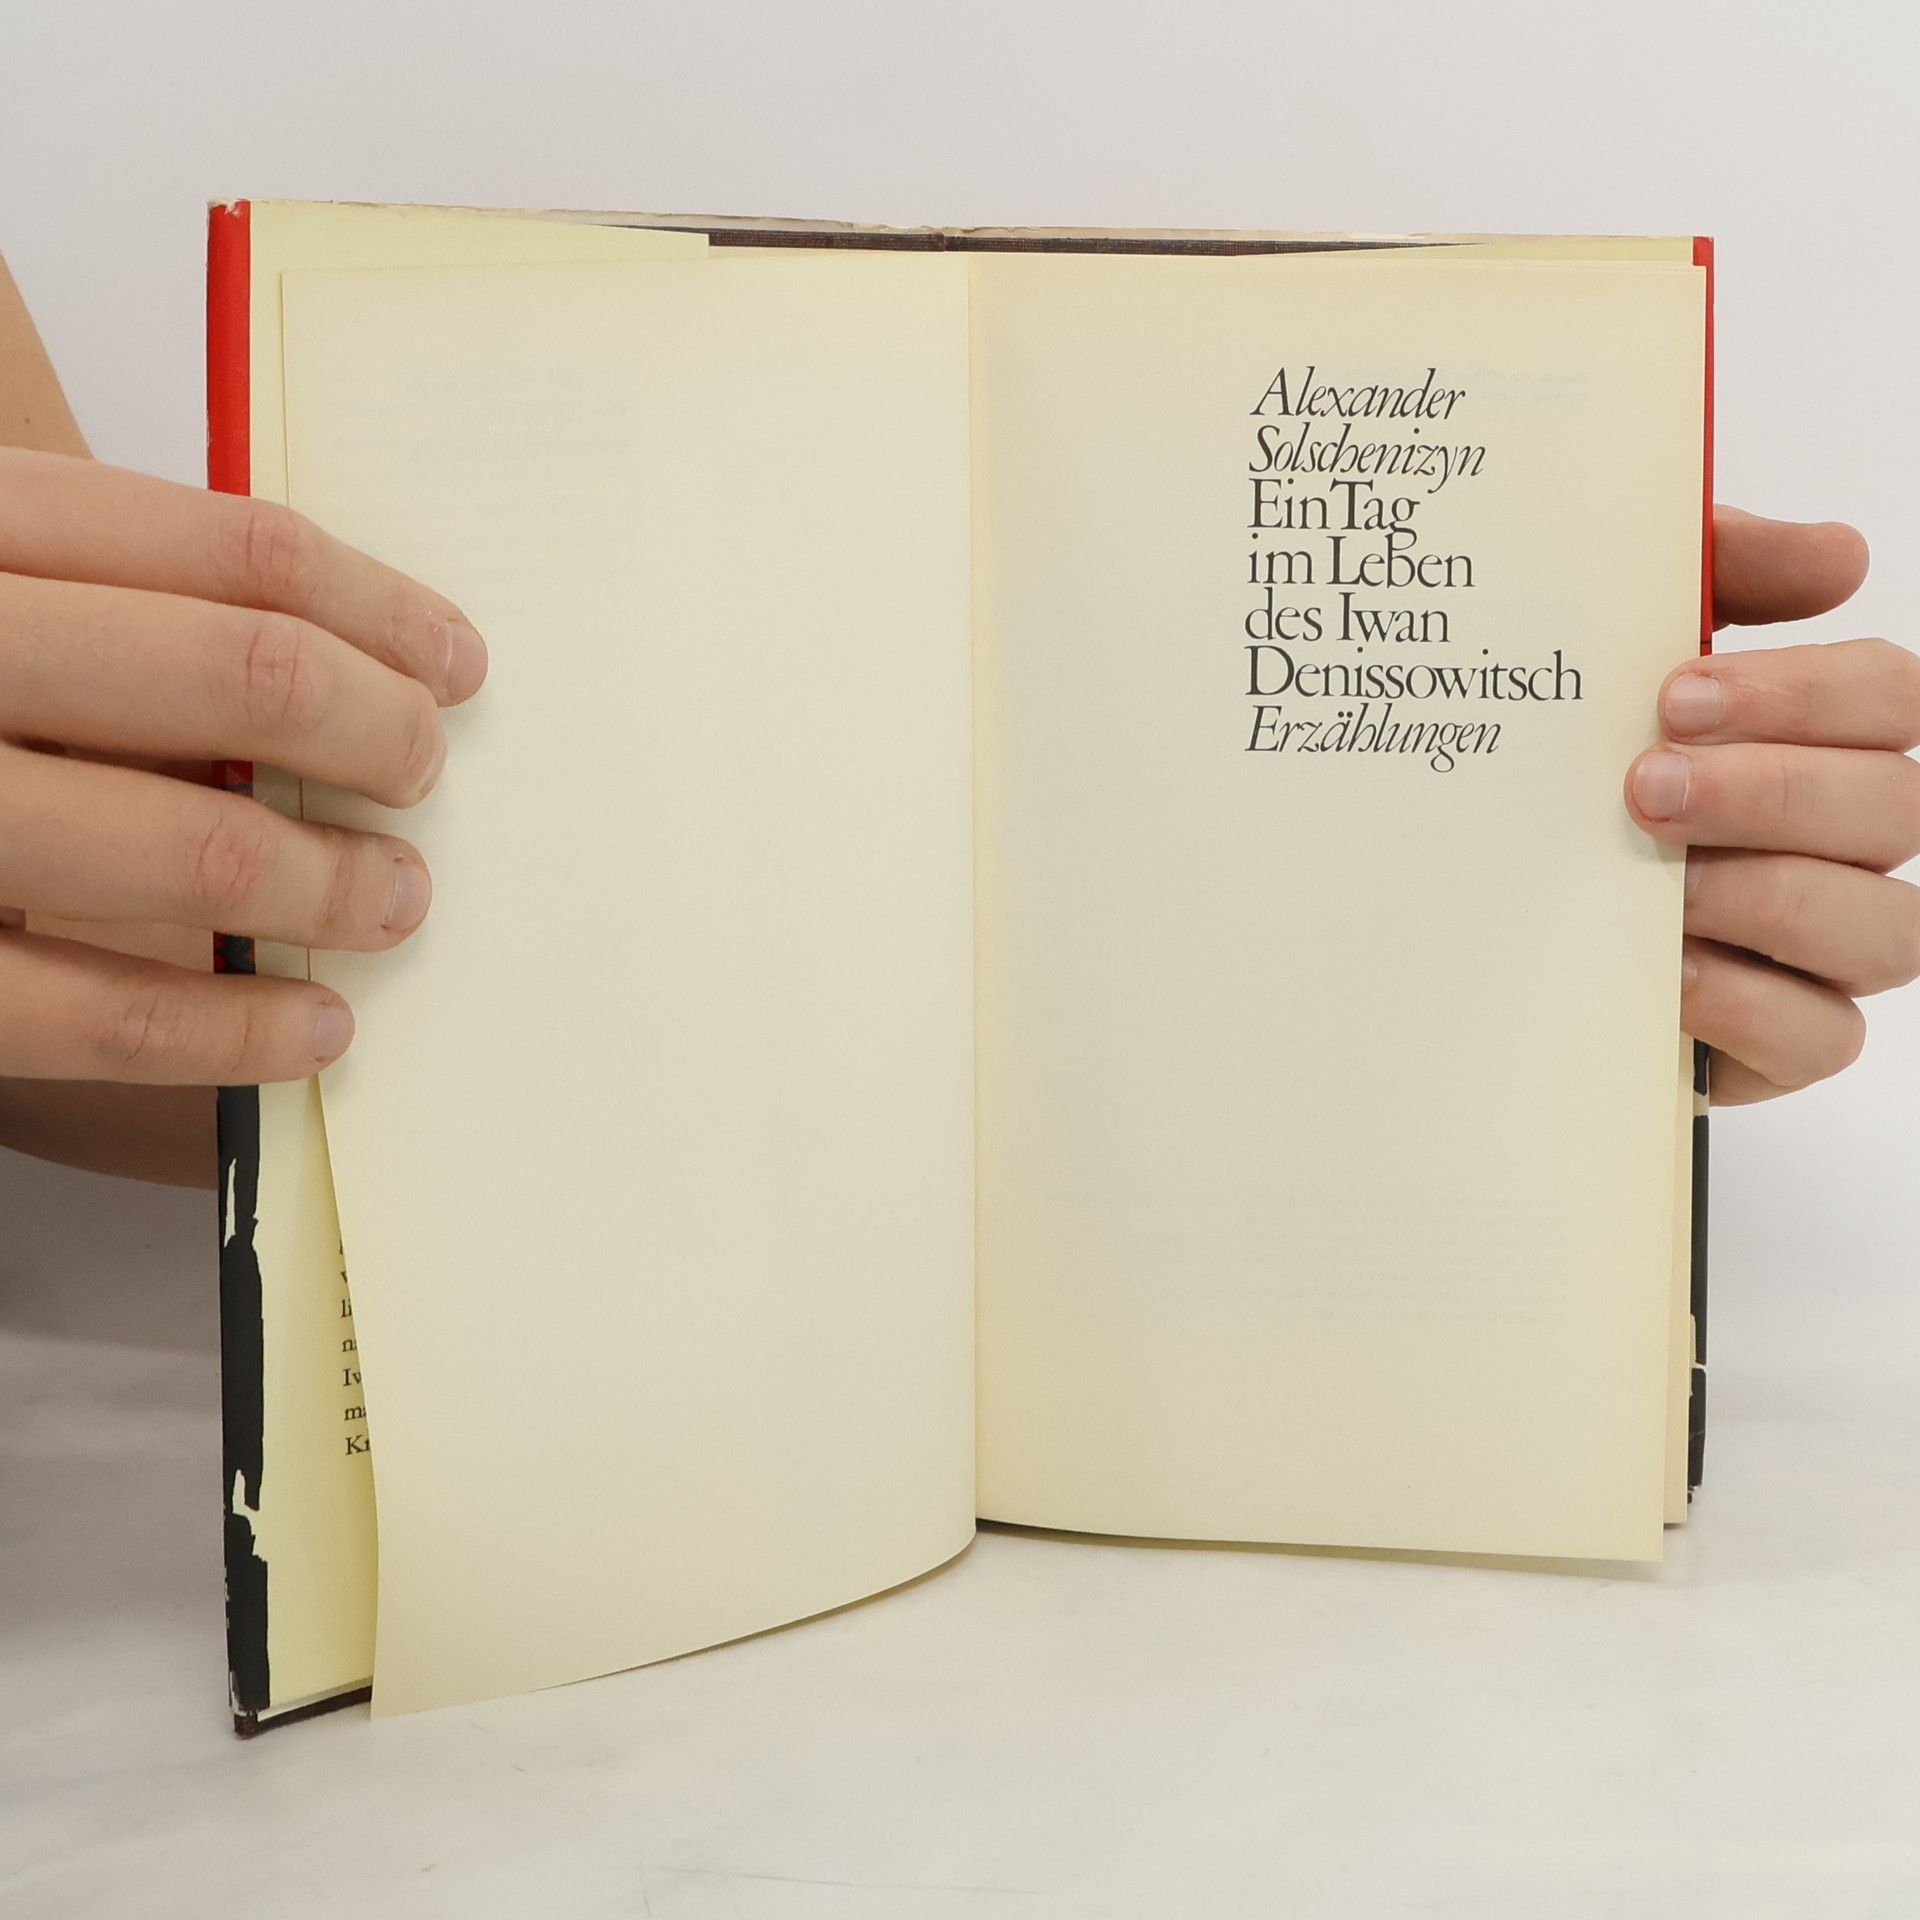 li
Iw
Kr
Alexander
Solschenizyn
Ein Tag
im Leben
des Iwan
Denissowitsch
Erzählungen